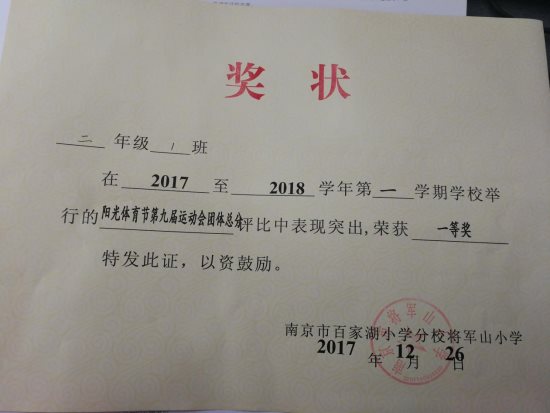 奖 状
二 年级 1 班
在 2017 至 2018 学年第 一 学期学校举
行的阳光体育节第九届运动会团体总分评比中表现突出,荣获 一等奖
特发此证,以资鼓励。
南京市百家湖小学分校将军山小学
2017 年 12 月 26 日